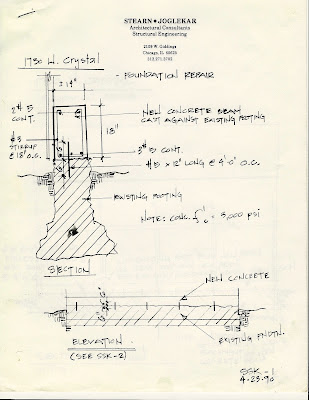 STEARN • JOGLEKAR
Architectural Consultants
Structural Engineering
Chicago, IL 60622
1730 W. Crystal
- FOUNDATION REPAIR
± 14"
2 # 5
CONT.
18"
NEW CONCRETE BEAM
CAST AGAINST EXISTING FOOTING
#3
STIRRUP
@ 18" O.C.
3 # 5 CONT.
#5 x 12" LONG @ 4'-0" O.C.
EXISTING FOOTING
NOTE: CONC. f'c = 3,000 PSI
SECTION
NEW CONCRETE
EXISTING FNDTN.
ELEVATION
(SEE SSK-2)
SSK-1
4-23-90